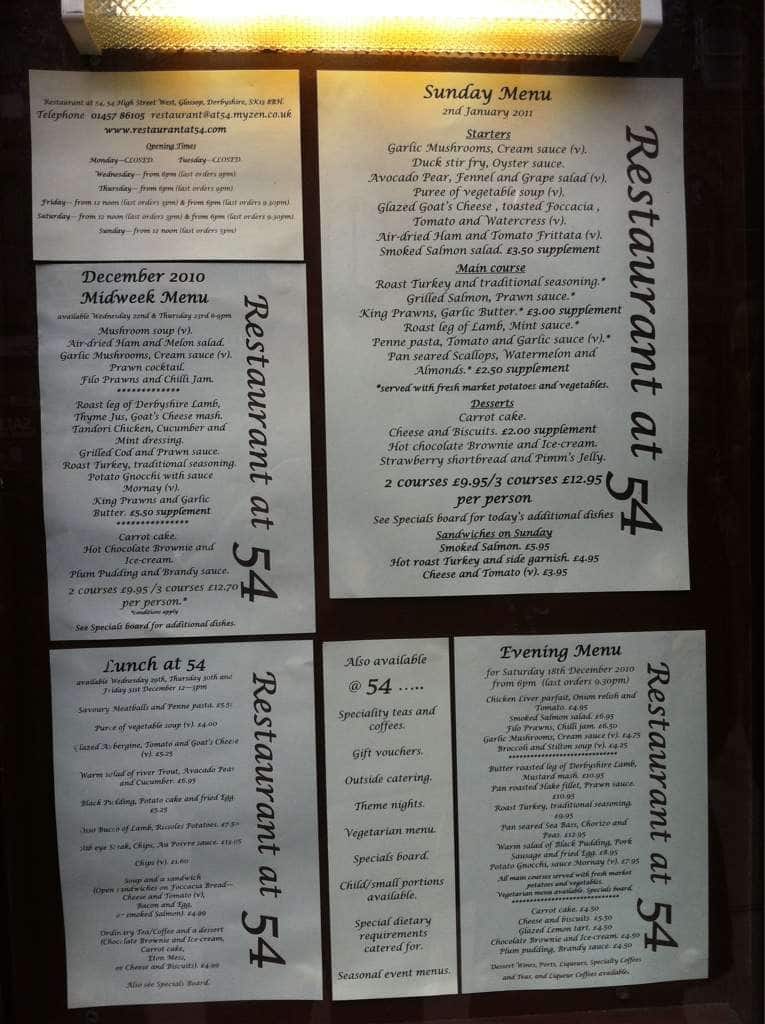 Restaurant at 54, 54 High Street West, Glossop, Derbyshire, SK13 8BH.
Telephone 01457 86105 restaurant@at54.myzen.co.uk
www.restaurantat54.com
Opening Times
Monday—CLOSED. Tuesday—CLOSED.
Wednesday— from 6pm (last orders 9pm)
Thursday— from 6pm (last orders 9pm)
Friday— from 12 noon (last orders 3pm) & from 6pm (last orders 9.30pm).
Saturday— from 12 noon (last orders 3pm) & from 6pm (last orders 9.30pm)
Sunday— from 12 noon (last orders 5pm)
Sunday Menu
2nd January 2011
Starters
Garlic Mushrooms, Cream sauce (v).
Duck stir fry, Oyster sauce.
Avocado Pear, Fennel and Grape salad (v).
Puree of vegetable soup (v).
Glazed Goat's Cheese , toasted Foccacia ,
Tomato and Watercress (v).
Air-dried Ham and Tomato Frittata (v).
Smoked Salmon salad. £3.50 supplement
Main course
Roast Turkey and traditional seasoning.*
Grilled Salmon, Prawn sauce.*
King Prawns, Garlic Butter.* £3.00 supplement
Roast leg of Lamb, Mint sauce.*
Penne pasta, Tomato and Garlic sauce (v).*
Pan seared Scallops, Watermelon and
Almonds.* £2.50 supplement
*served with fresh market potatoes and vegetables.
Desserts
Carrot cake.
Cheese and Biscuits. £2.00 supplement
Hot chocolate Brownie and Ice-cream.
Strawberry shortbread and Pimm's Jelly.
2 courses £9.95/3 courses £12.95
per person
See Specials board for today's additional dishes
Sandwiches on Sunday
Smoked Salmon. £5.95
Hot roast Turkey and side garnish. £4.95
Cheese and Tomato (v). £3.95
Restaurant at 54
December 2010
Midweek Menu
available Wednesday 22nd & Thursday 23rd 6-9pm
Mushroom soup (v).
Air-dried Ham and Melon salad.
Garlic Mushrooms, Cream sauce (v).
Prawn cocktail.
Filo Prawns and Chilli Jam.
*************
Roast leg of Derbyshire Lamb,
Thyme Jus, Goat's Cheese mash.
Tandori Chicken, Cucumber and
Mint dressing.
Grilled Cod and Prawn sauce.
Roast Turkey, traditional seasoning.
Potato Gnocchi with sauce
Mornay (v).
King Prawns and Garlic
Butter. £5.50 supplement
***************
Carrot cake.
Hot Chocolate Brownie and
Ice-cream.
Plum Pudding and Brandy sauce.
2 courses £9.95 /3 courses £12.70
per person.*
*conditions apply
See Specials board for additional dishes.
Restaurant at 54
Lunch at 54
available Wednesday 29th, Thursday 30th and
Friday 31st December 12—3pm
Savoury Meatballs and Penne pasta. £5.50
Puree of vegetable soup (v). £4.00
Glazed Aubergine, Tomato and Goat's Cheese
(v). £5.25
Warm salad of river Trout, Avocado Pear
and Cucumber. £6.95
Black Pudding, Potato cake and fried Egg.
£5.25
Osso Bucco of Lamb, Rissoles Potatoes. £7.50
Rib eye Steak, Chips, Au Poivre sauce.
Chips (v). £1.60
Soup and a sandwich
(Open sandwiches on Foccacia Bread—
Cheese and Tomato (v),
Bacon and Egg,
or smoked Salmon). £4.99
Ordinary Tea/Coffee and a dessert
(Chocolate Brownie and Ice-cream,
Carrot cake,
Eton Mess,
or Cheese and Biscuits). £4.99
Also see Specials Board.
Restaurant at 54
Also available
@ 54 .....
Speciality teas and
coffees.
Gift vouchers.
Outside catering.
Theme nights.
Vegetarian menu.
Specials board.
Child/small portions
available.
Special dietary
requirements
catered for.
Seasonal event menus.
Evening Menu
for Saturday 18th December 2010
from 6pm (last orders 9.30pm)
Chicken Liver parfait, Onion relish and
Tomato. £4.95
Smoked Salmon salad. £6.95
Filo Prawns, Chilli jam. £6.50
Garlic Mushrooms, Cream sauce (v). £4.75
Broccoli and Stilton soup (v). £4.25
****************************
Butter roasted leg of Derbyshire Lamb,
Mustard mash. £10.95
Pan roasted Hake fillet, Prawn sauce.
£10.95
Roast Turkey, traditional seasoning.
£9.95
Pan seared Sea Bass, Chorizo and
Peas. £12.95
Warm salad of Black Pudding, Pork
Sausage and fried Egg. £8.95
Potato Gnocchi, sauce Mornay (v). £7.95
All main courses served with fresh market
potatoes and vegetables.
Vegetarian menu available. Specials board.
****************************
Carrot cake. £4.50
Cheese and biscuits £5.50
Glazed Lemon tart. £4.50
Chocolate Brownie and Ice-cream. £4.50
Plum pudding, Brandy sauce. £4.50
Dessert Wines, Ports, Liqueurs, Specialty Coffees
and Teas, and Liqueur Coffees available.
Restaurant at 54